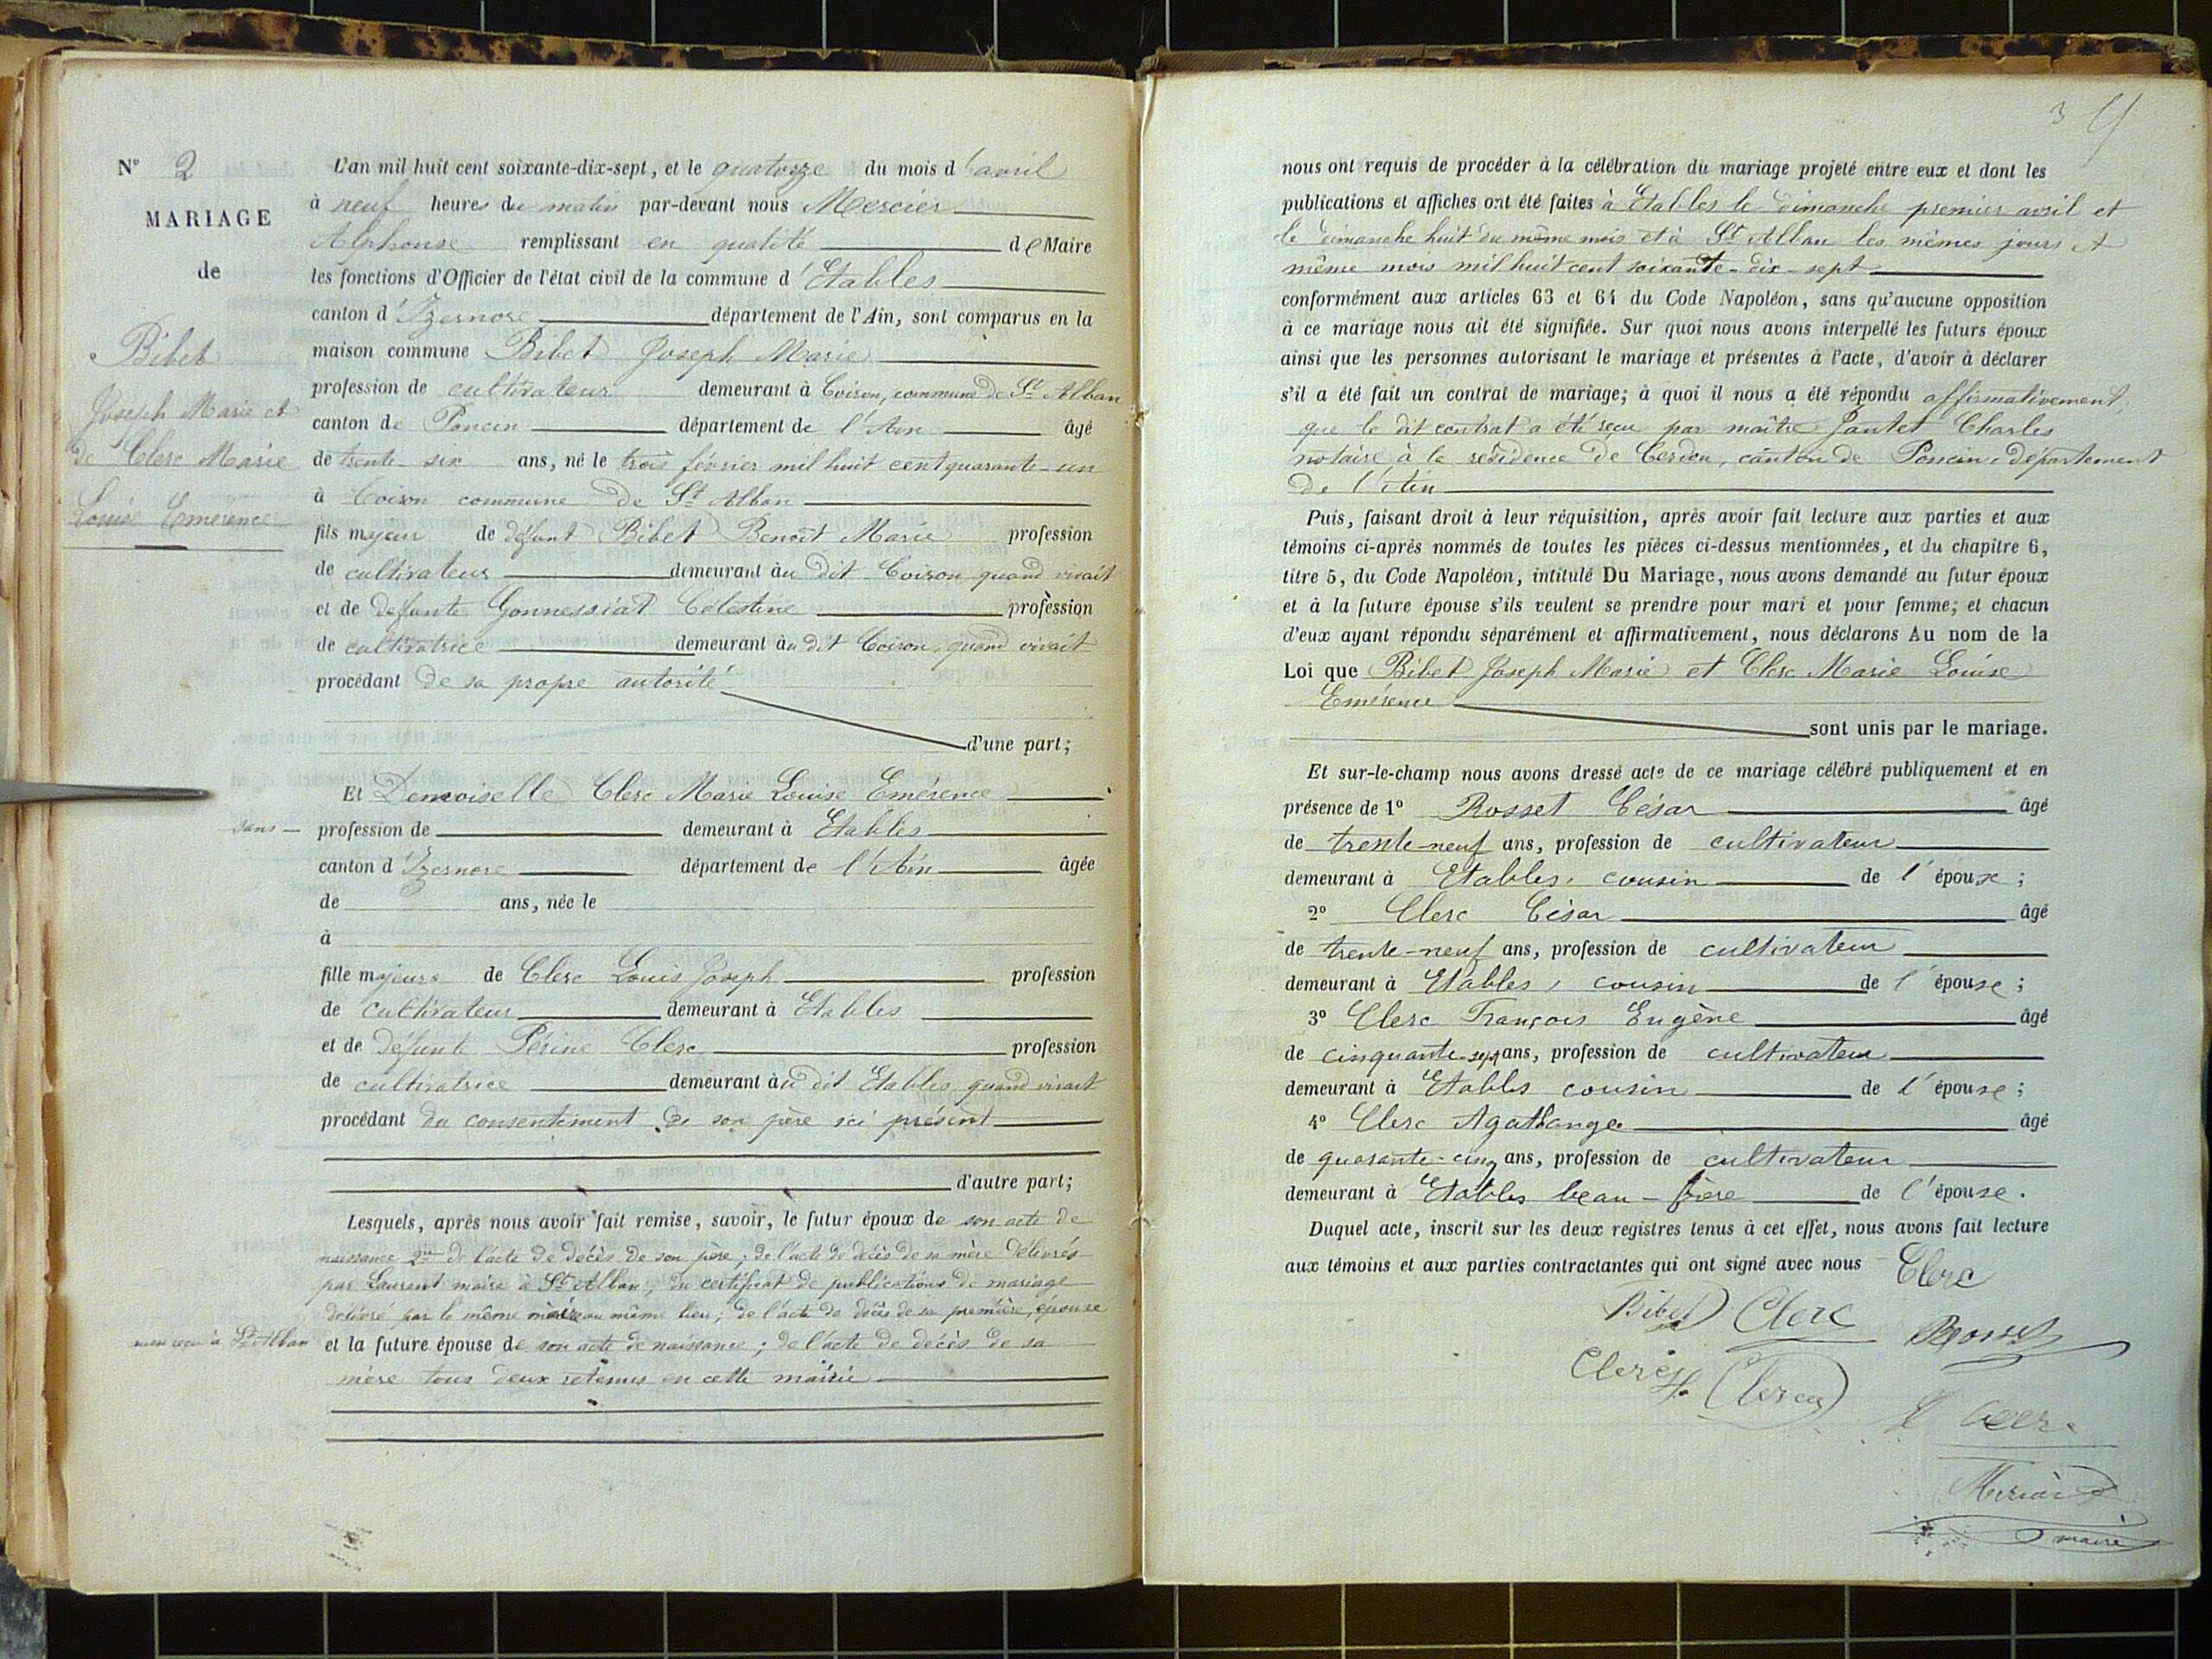 N° 2
MARIAGE
de
Bibet
Joseph Marie et
de Clerc Marie
Louise Emérence
L'an mil huit cent soixante-dix-sept, et le quatorze du mois d'avril
à neuf heures du matin par-devant nous Mercier
Alphonse remplissant en qualité de Maire
les fonctions d'Officier de l'état civil de la commune d'Etables
canton d'Izernore département de l'Ain, sont comparus en la
maison commune Bibet Joseph Marie
profession de cultivateur demeurant à Coiron, commune de St Alban
canton de Poncin département de l'Ain âgé
de trente-six ans, né le trois février mil huit cent quarante-un
à Coiron commune de St Alban
fils majeur de défunt Bibet Benoît Marie profession
de cultivateur demeurant au dit Coiron quand vivait
et de defunte Gonnessiat Célestine profession
de cultivatrice demeurant au dit Coiron, quand vivait
procédant de sa propre autorité
d'une part;
Et Demoiselle Clerc Marie Louise Emérence
sans — profession de demeurant à Etables
canton d'Izernore département de l'Ain âgée
de ans, née le
à
fille majeure de Clerc Louis Joseph profession
de cultivateur demeurant à Etables
et de défunte Périne Clerc profession
de cultivatrice demeurant au dit Etables quand vivait
procédant du consentement de son père ici présent
d'autre part;
Lesquels, après nous avoir fait remise, savoir, le futur époux de son acte de
naissance de l'acte de décès de son père; de l'acte de décès de sa mère délivrés
par Laurent maire à St Alban; du certificat de publications de mariage
délivré par le même maire au même lieu; de l'acte de décès de sa première épouse
à St Alban et la future épouse de son acte de naissance; de l'acte de décès de sa
mère tous deux retenus en cette mairie
3
nous ont requis de procéder à la célébration du mariage projeté entre eux et dont les
publications et affiches ont été faites à Etables le dimanche premier avril et
le dimanche huit du même mois et à St Alban les mêmes jours et
même mois mil huit cent soixante-dix-sept
conformément aux articles 63 et 64 du Code Napoléon, sans qu'aucune opposition
à ce mariage nous ait été signifiée. Sur quoi nous avons interpellé les futurs époux
ainsi que les personnes autorisant le mariage et présentes à l'acte, d'avoir à déclarer
s'il a été fait un contrat de mariage; à quoi il nous a été répondu affirmativement,
que le dit contrat a été reçu par maître Jantet Charles
notaire à la résidence de Cerdon, canton de Poncin, département
de l'Ain
Puis, faisant droit à leur réquisition, après avoir fait lecture aux parties et aux
témoins ci-après nommés de toutes les pièces ci-dessus mentionnées, et du chapitre 6,
titre 5, du Code Napoléon, intitulé Du Mariage, nous avons demandé au futur époux
et à la future épouse s'ils veulent se prendre pour mari et pour femme; et chacun
d'eux ayant répondu séparément et affirmativement, nous déclarons Au nom de la
Loi que Bibet Joseph Marie et Clerc Marie Louise
Emérence
sont unis par le mariage.
Et sur-le-champ nous avons dressé acte de ce mariage célébré publiquement et en
présence de 1° Rosset César âgé
de trente-neuf ans, profession de cultivateur
demeurant à Etables, cousin de l'épouse;
2° Clerc César âgé
de trente-neuf ans, profession de cultivateur
demeurant à Etables, cousin de l'épouse;
3° Clerc François Eugène âgé
de cinquante-sept ans, profession de cultivateur
demeurant à Etables cousin de l'épouse;
4° Clerc Agathange âgé
de quarante-cinq ans, profession de cultivateur
demeurant à Etables beau-frère de l'épouse.
Duquel acte, inscrit sur les deux registres tenus à cet effet, nous avons fait lecture
aux témoins et aux parties contractantes qui ont signé avec nous Clerc
Bibet Clerc Rosset
Clerc
Mercier
maire